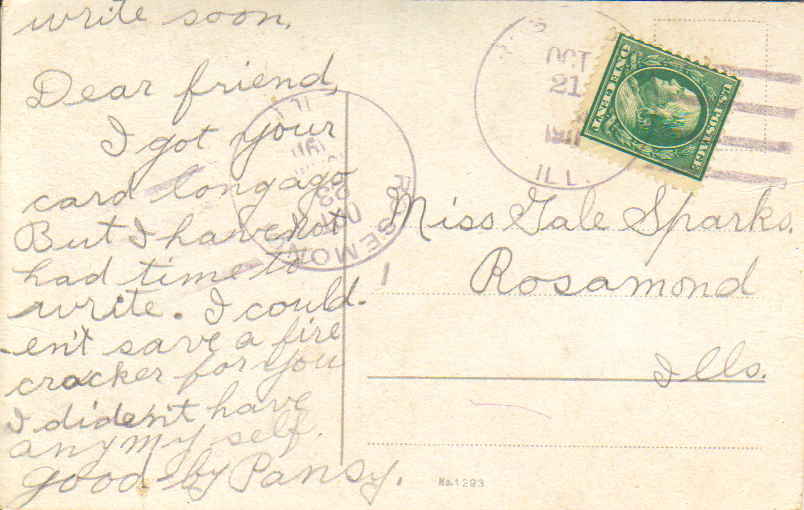 write soon.
Dear friend,
I got your
card long ago
But I have not
had time to
write. I could.
-en't save a fire
cracker for you
I diden't have
any my self.
good-by Pansy.
OCT
21
ILL.
ONE CENT
U.S. POSTAGE
Miss Gale Sparks.
Rosamond
Ills.
No. 1293